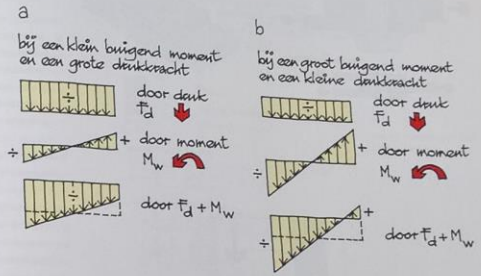 a
bij een klein buigend moment
en een grote drukkracht
÷
door druk
Fd
÷
+
door moment
Mw
÷
door Fd + Mw
b
bij een groot buigend moment
en een kleine drukkracht
÷
door druk
Fd
÷
+
door moment
Mw
÷
+
door Fd + Mw